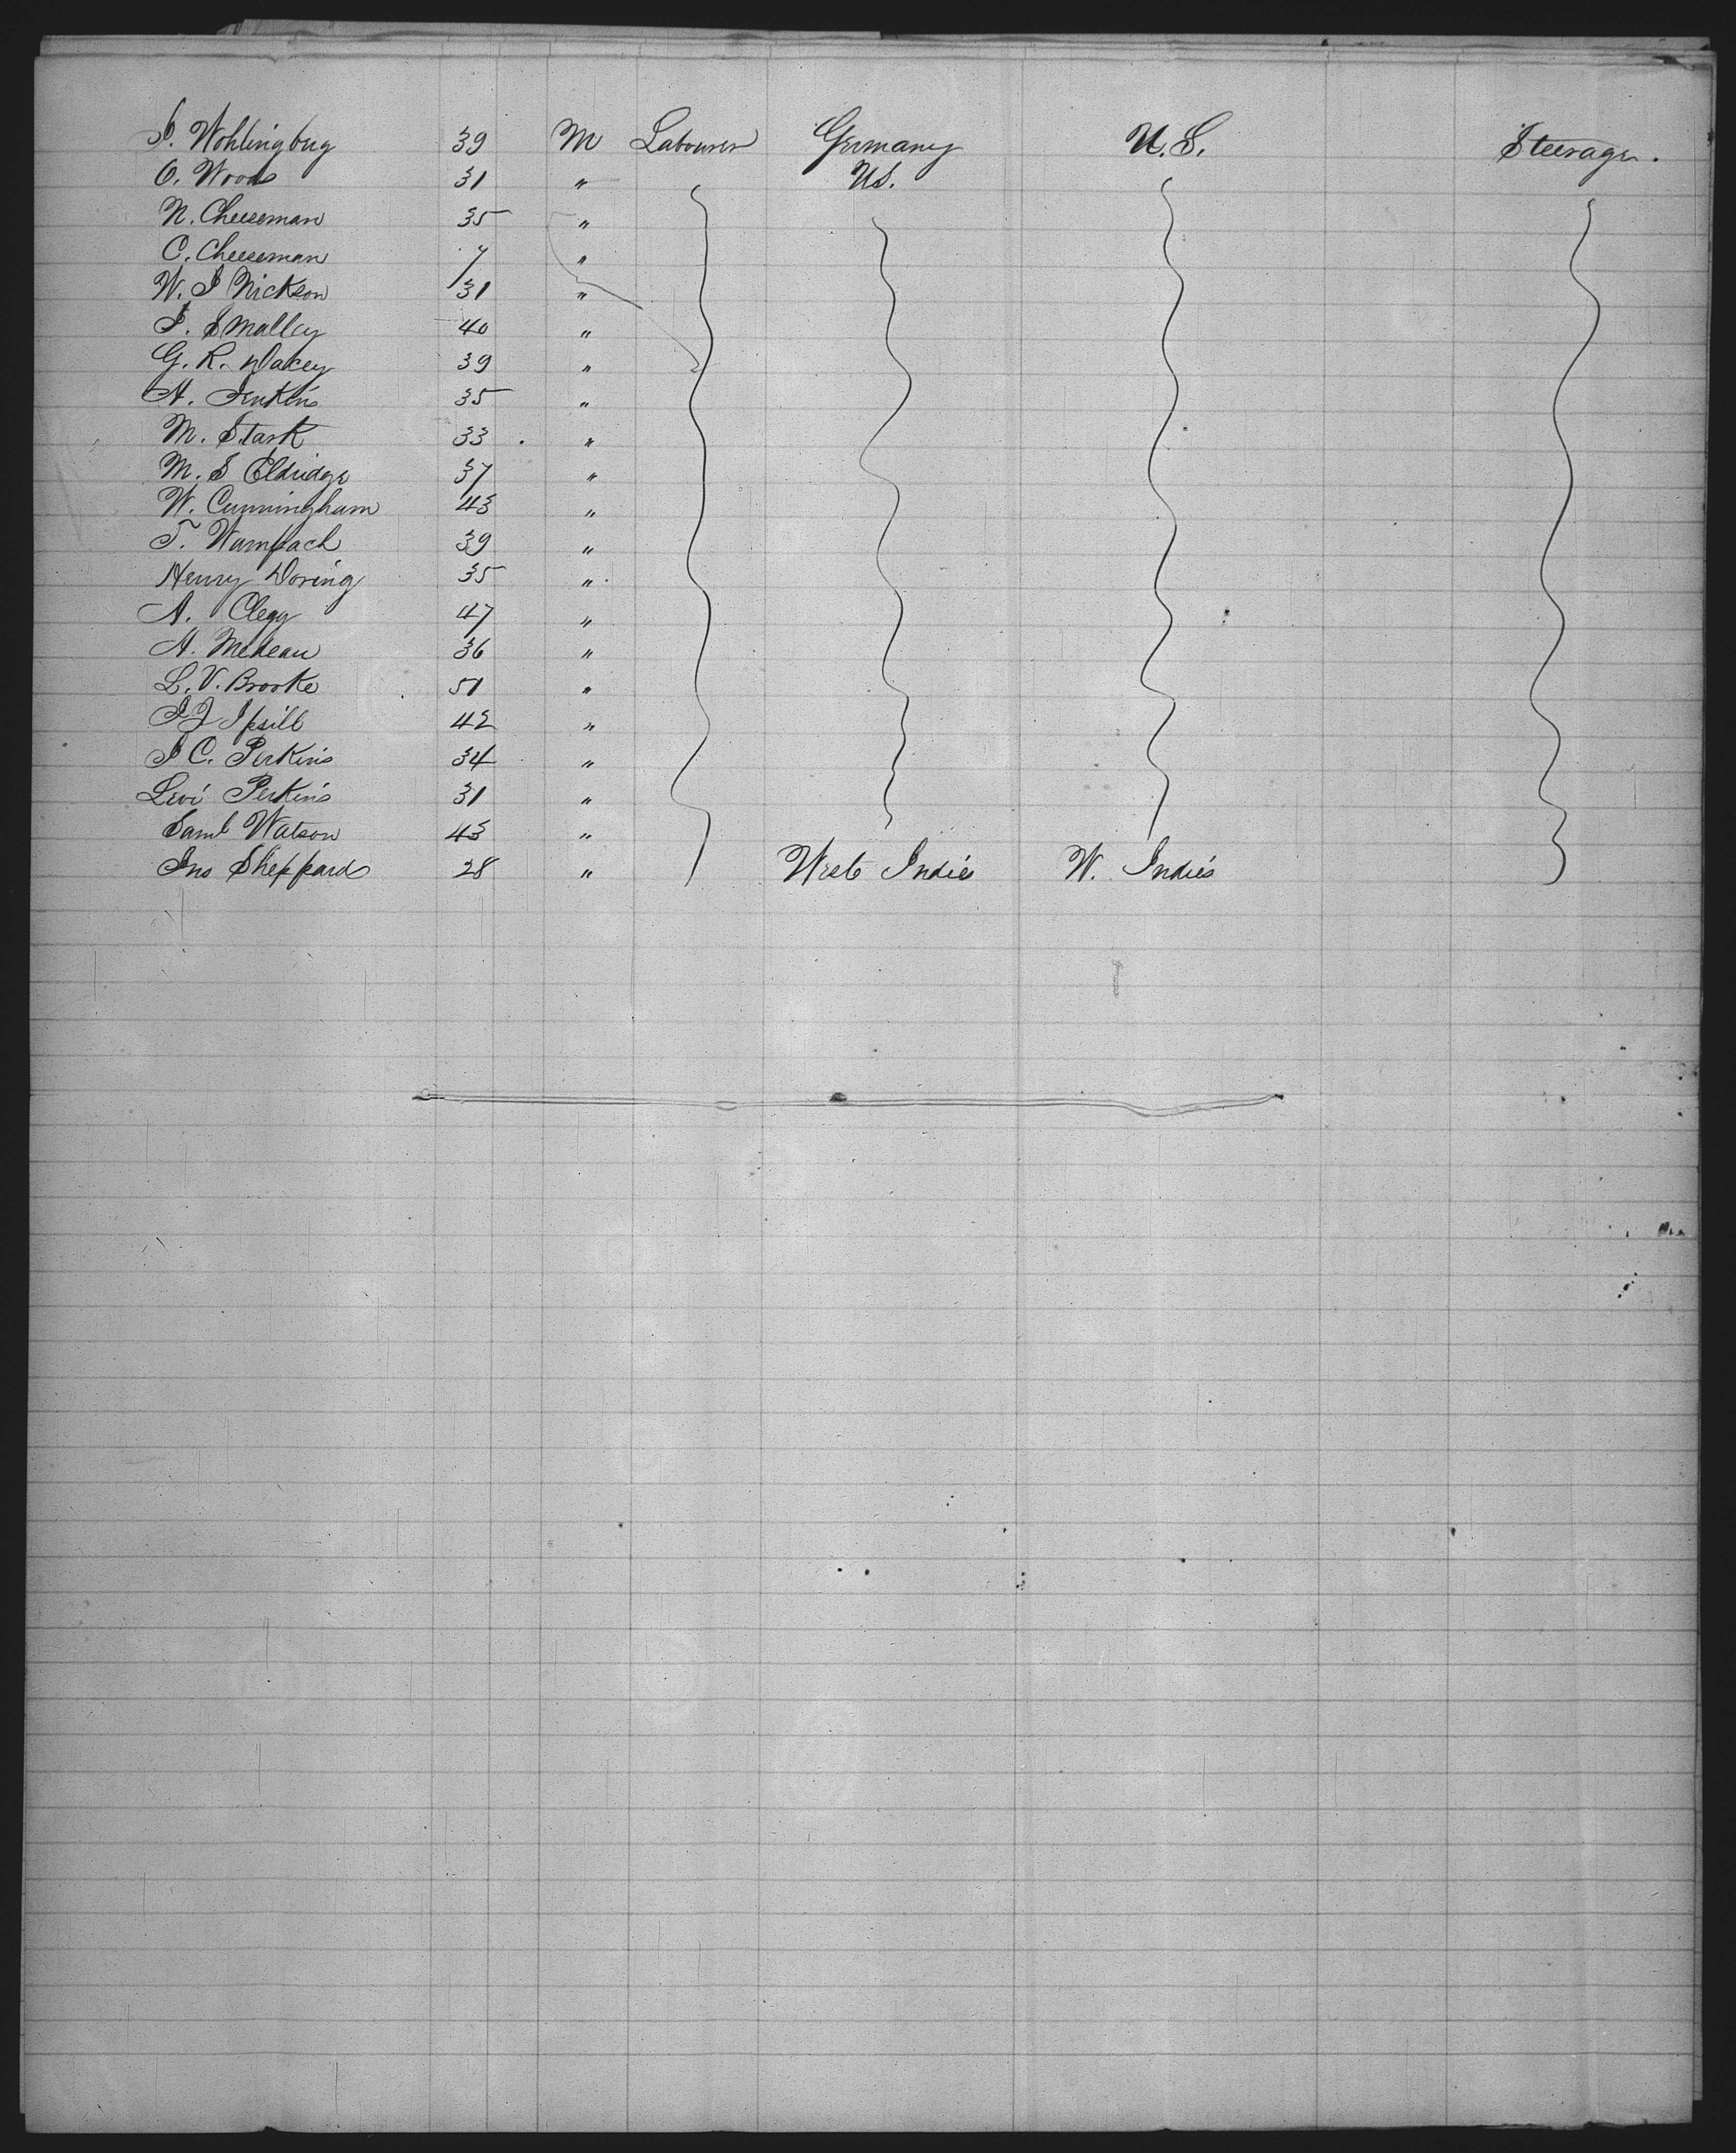 J. Wohlingbug 39 M Labourer Germany U.S. Steerage.
O. Woods 31 " U.S.
N. Cheeseman 35 "
C. Cheeseman 7 "
W. J Nickson 31 "
J. Smalley 40 "
G. R. Dakey 39 "
A. Jenkins 35 "
M. Stark 33 "
M. S Eldridge 37 "
W. Cunningham 43 "
T. Wampach 39 "
Henry Doring 35 "
A. Clegg 47 "
A. 36 "
L. V. Brooke 51 "
J J Ipsill 42 "
J C. Perkins 34 "
Levi Perkins 31 "
Saml Watson 43 "
Jno Sheppard 28 " West Indies W. Indies